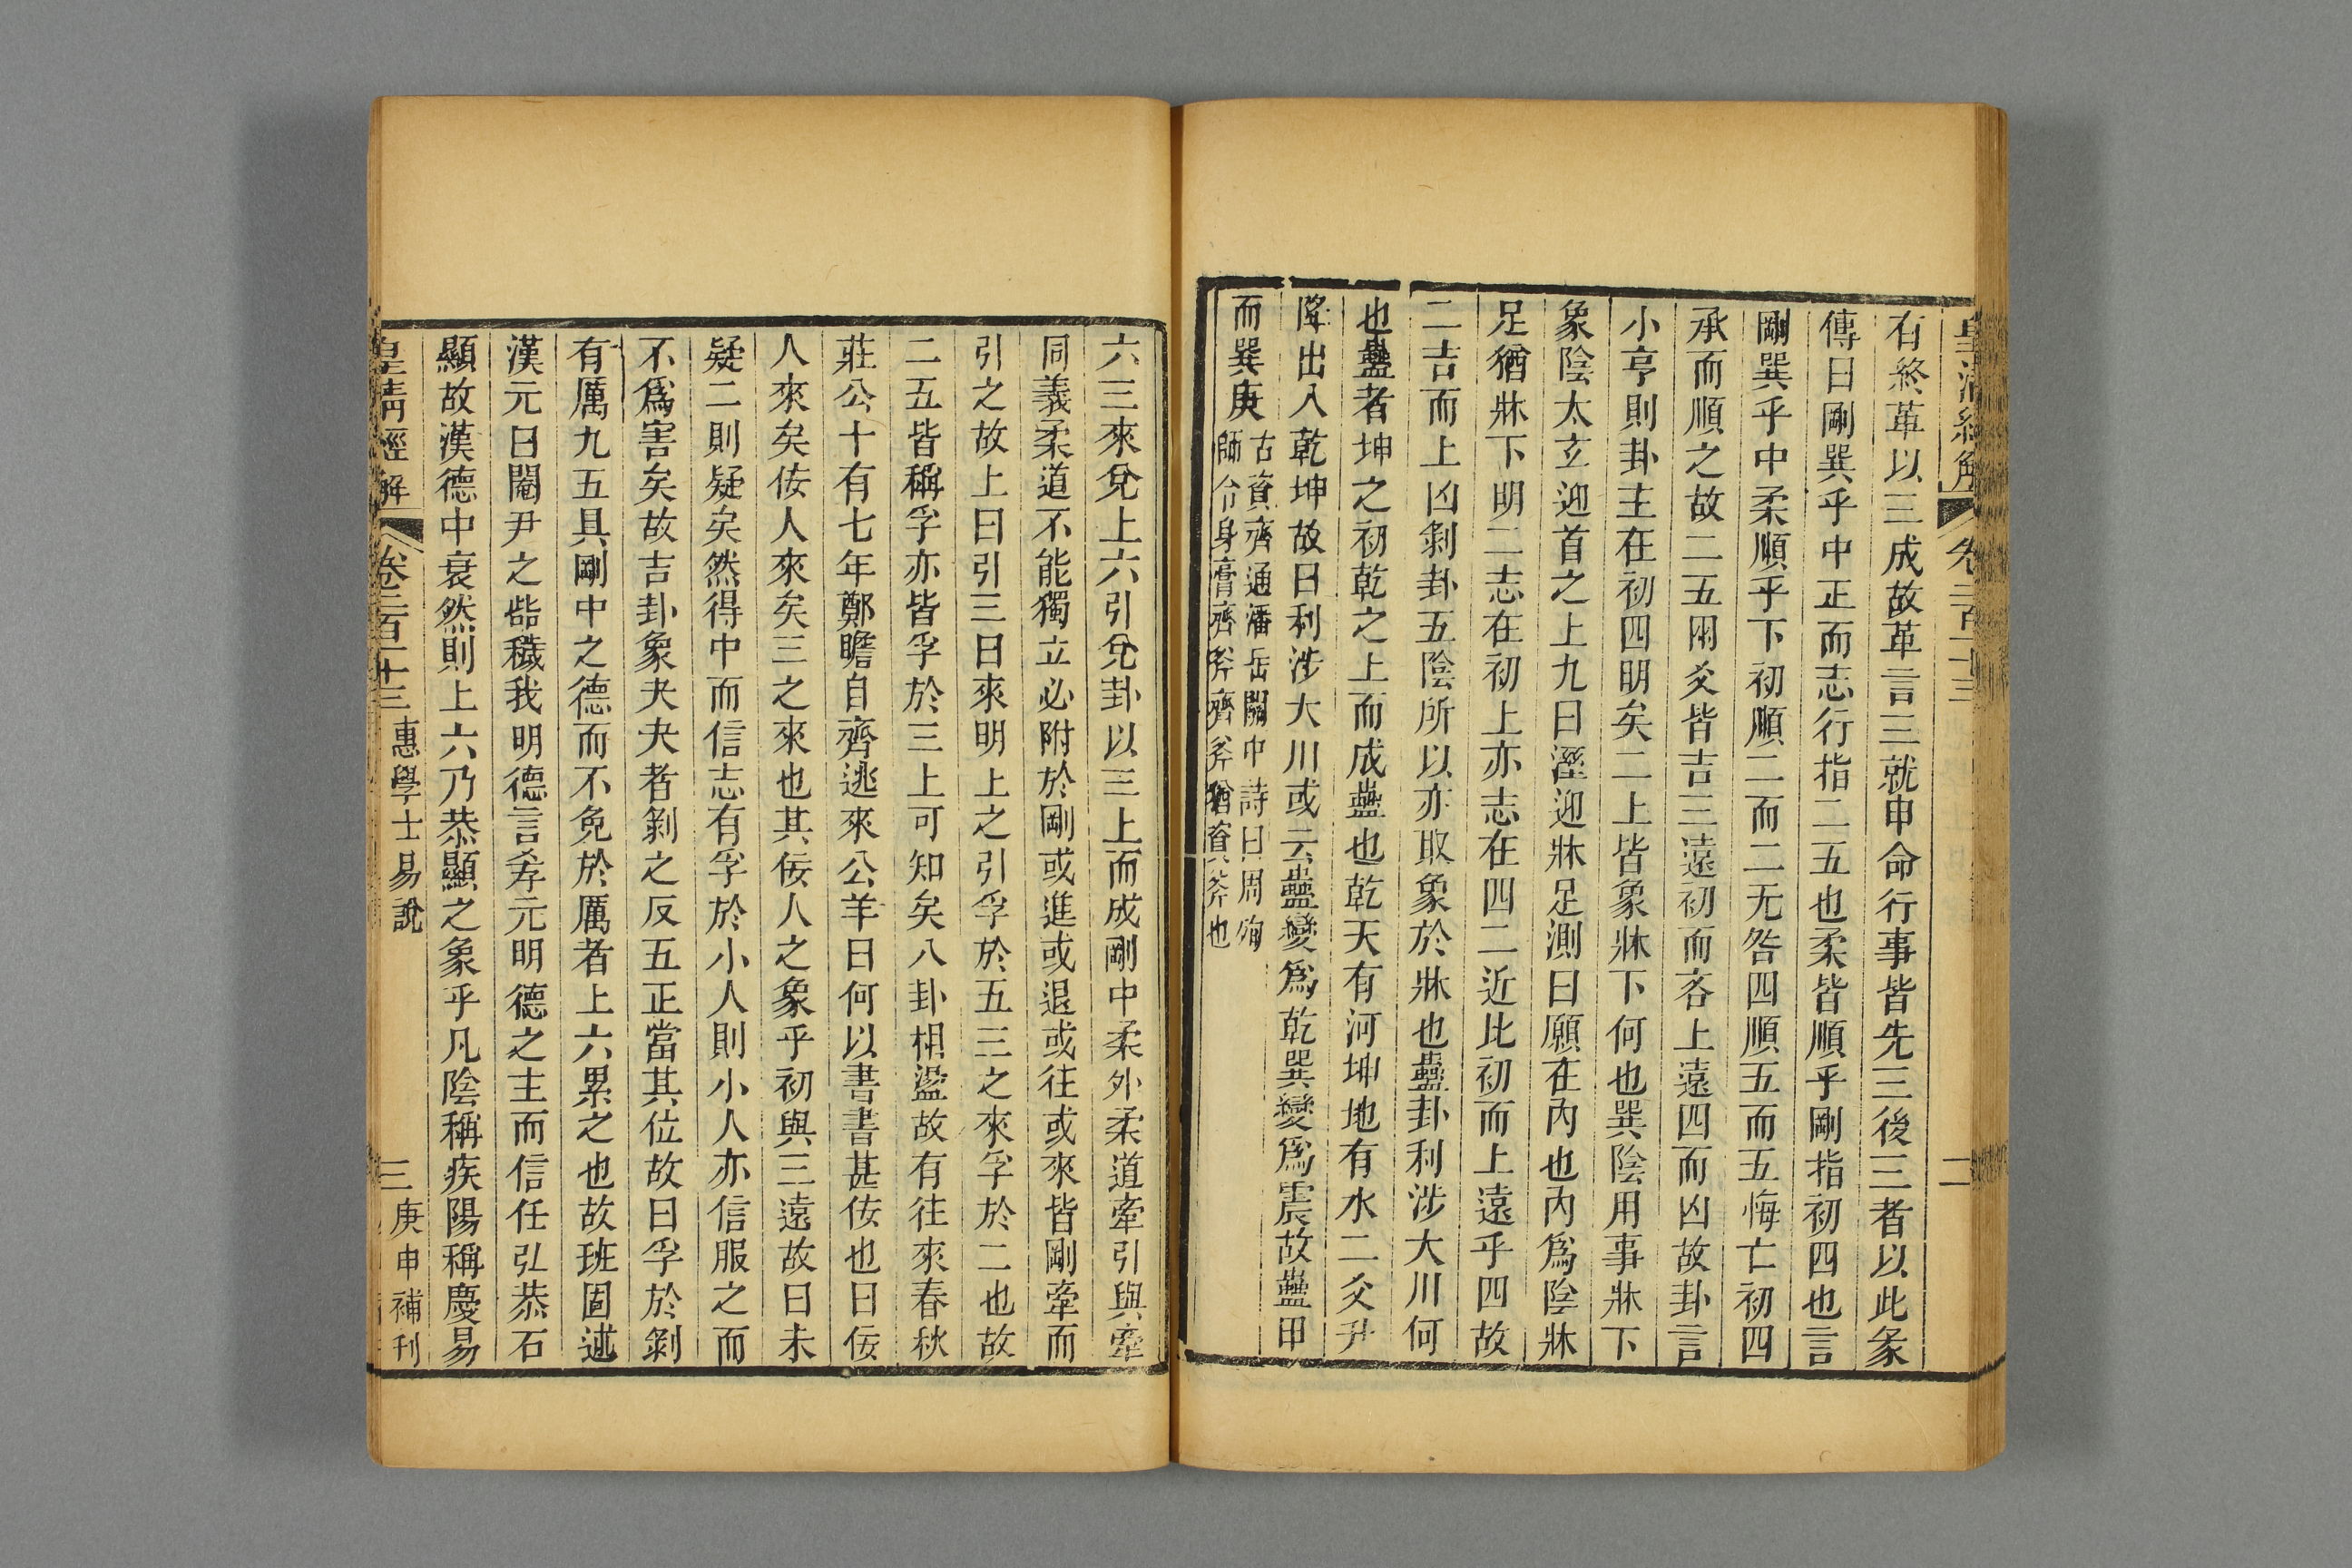 皇清經解 卷二百二十三 二
有終革以三成故革言三就申命行事皆先三後三者以此彖
傳曰剛巽乎中正而志行指二五也柔皆順乎剛指初四也言
剛巽乎中柔順乎下初順二而二无咎四順五而五悔亡初四
承而順之故二五兩爻皆吉三遠初而吝上遠四而凶故卦言
小亨則卦主在初四明矣二上皆象牀下何也巽陰用事牀下
象陰太玄迎首之上九日溼迎牀足測曰願在內也內爲陰牀
足猶牀下明二志在初上亦志在四二近比初而上遠乎四故
二吉而上凶剝卦五陰所以亦取象於牀也蠱卦利涉大川何
也蠱者坤之初乾之上而成蠱也乾天有河坤地有水二爻升
降出入乾坤故曰利涉大川或云蠱變爲乾巽變爲震故蠱甲
而巽庚古資齊通潘岳關中詩曰周殉
師令身膏齊斧齊斧猶資斧也
六三來兌上六引兌卦以三上而成剛中柔外柔道牽引與牽
同義柔道不能獨立必附於剛或進或退或往或來皆剛牽而
引之故上曰引三曰來明上之引孚於五三之來孚於二也故
二五皆稱孚亦皆孚於三上可知矣八卦相盪故有往來春秋
莊公十有七年鄭瞻自齊逃來公羊曰何以書書甚佞也曰佞
人來矣佞人來矣三之來也其佞人之象乎初與三遠故曰未
疑二則疑矣然得中而信志有孚於小人則小人亦信服之而
不爲害矣故吉卦象夬夬者剝之反五正當其位故曰孚於剝
有厲九五具剛中之德而不免於厲者上六累之也故班固述
漢元曰閹尹之呰穢我明德言孝元明德之主而信任弘恭石
顯故漢德中衰然則上六乃恭顯之象乎凡陰稱疾陽稱慶易
皇清經解 卷二百二十三 惠學士易說 三 庚申補刊